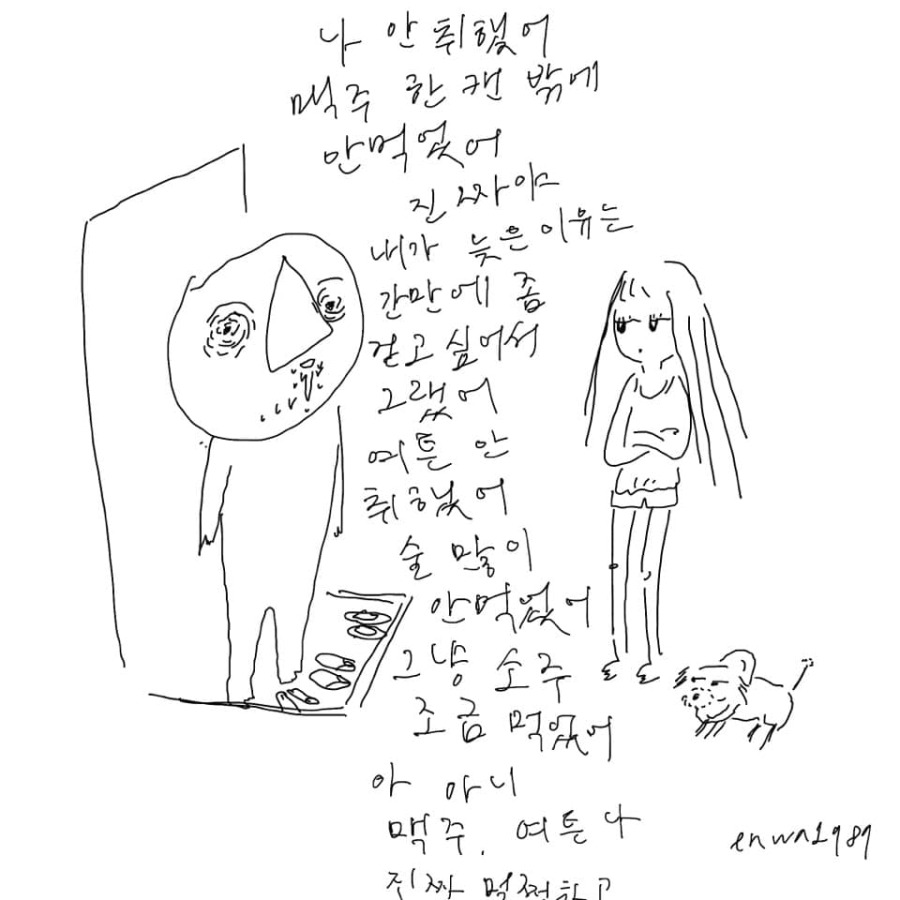 나 안 취했어
맥주 한 캔 밖에
안먹었어
진짜야
내가 늦은 이유는
간만에 좀
걷고 싶어서
그랬어
여튼 안
취했어
술 많이
안먹었어
그냥 소주
조금 먹었어
아 아니
맥주. 여튼 나
진짜 멀쩡하고
enwn1989